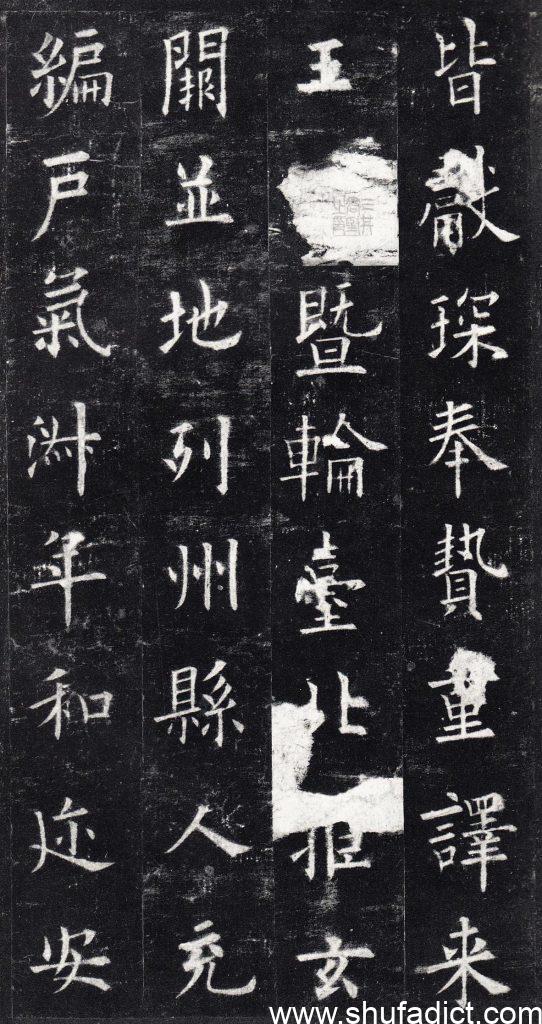 皆獻琛奉贄重譯来
王暨輪臺北拒玄
闕並地列州縣人充
編戶氣淑年和迩安
www.shufadict.com